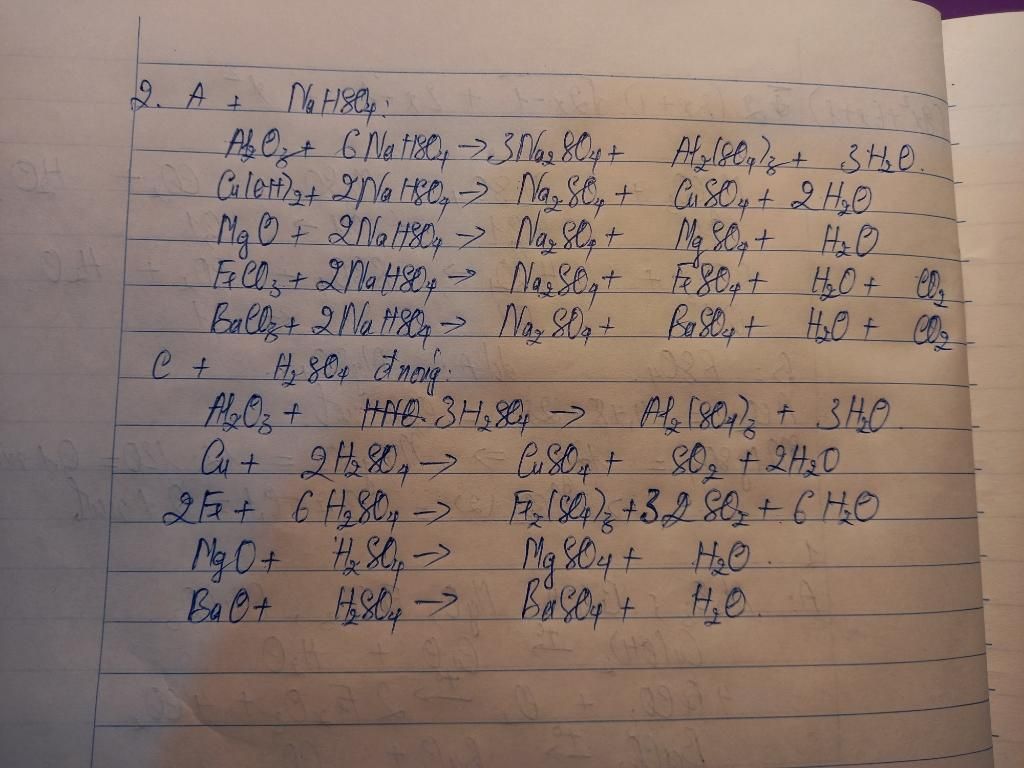 2. A + NaHSO4:
Al2O3 + 6NaHSO4 → 3Na2SO4 + Al2(SO4)3 + 3H2O.
Cu(OH)2 + 2NaHSO4 → Na2SO4 + CuSO4 + 2H2O
MgO + 2NaHSO4 → Na2SO4 + MgSO4 + H2O
FeCO3 + 2NaHSO4 → Na2SO4 + FeSO4 + H2O + CO2
BaCO3 + 2NaHSO4 → Na2SO4 + BaSO4 + H2O + CO2
C + H2SO4 đ nóng:
Al2O3 + 3H2SO4 → Al2(SO4)3 + 3H2O.
Cu + 2H2SO4 → CuSO4 + SO2 + 2H2O
2Fe + 6H2SO4 → Fe2(SO4)3 + 3 2 SO2 + 6H2O
MgO + H2SO4 → MgSO4 + H2O.
BaO + H2SO4 → BaSO4 + H2O.